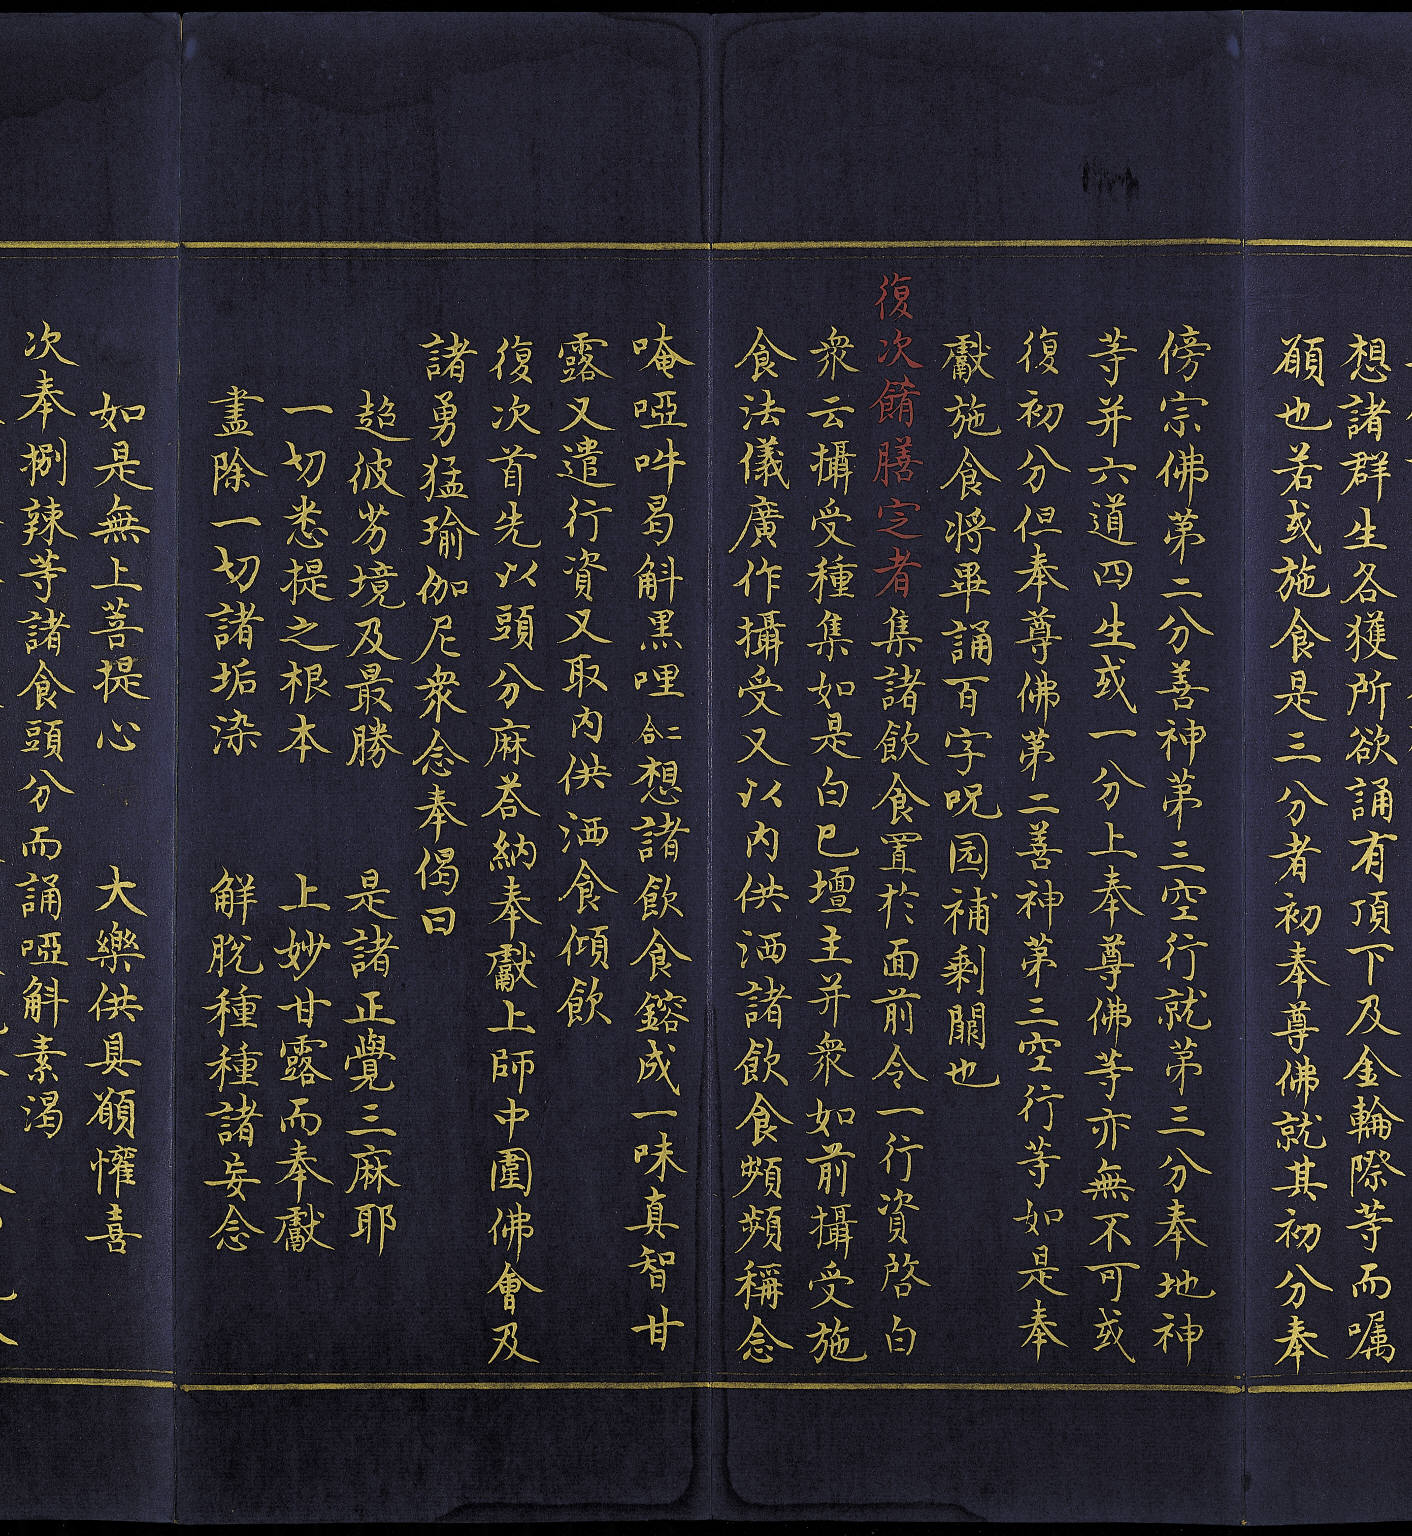 想諸群生各獲所欲誦有頂下及金輪際等而囑
願也若或施食是三分者初奉尊佛就其初分奉
傍宗佛第二分善神第三空行就第三分奉地神
等并六道四生或一分上奉尊佛等亦無不可或
復初分但奉尊佛第二善神第三空行等如是奉
獻施食將畢誦百字呪园補剩闕也
復次餚膳定者集諸飲食置於面前令一行資啓白
衆云攝受種集如是白已壇主并衆如前攝受施
食法儀廣作攝受又以內供洒諸飲食頻頻稱念
唵啞吽曷斛黑哩 二合 想諸飲食鎔成一味真智甘
露又遣行資又取內供洒食傾飲
復次首先以頭分麻荅納奉獻上師中圍佛會及
諸勇猛瑜伽尼衆念奉偈曰
超彼劣境及最勝 是諸正覺三麻耶
一切悉提之根本 上妙甘露而奉獻
盡除一切諸垢染 解脫種種諸妄念
如是無上菩提心 大樂供具願懽喜
次奉捌辣等諸食頭分而誦啞斛素渴